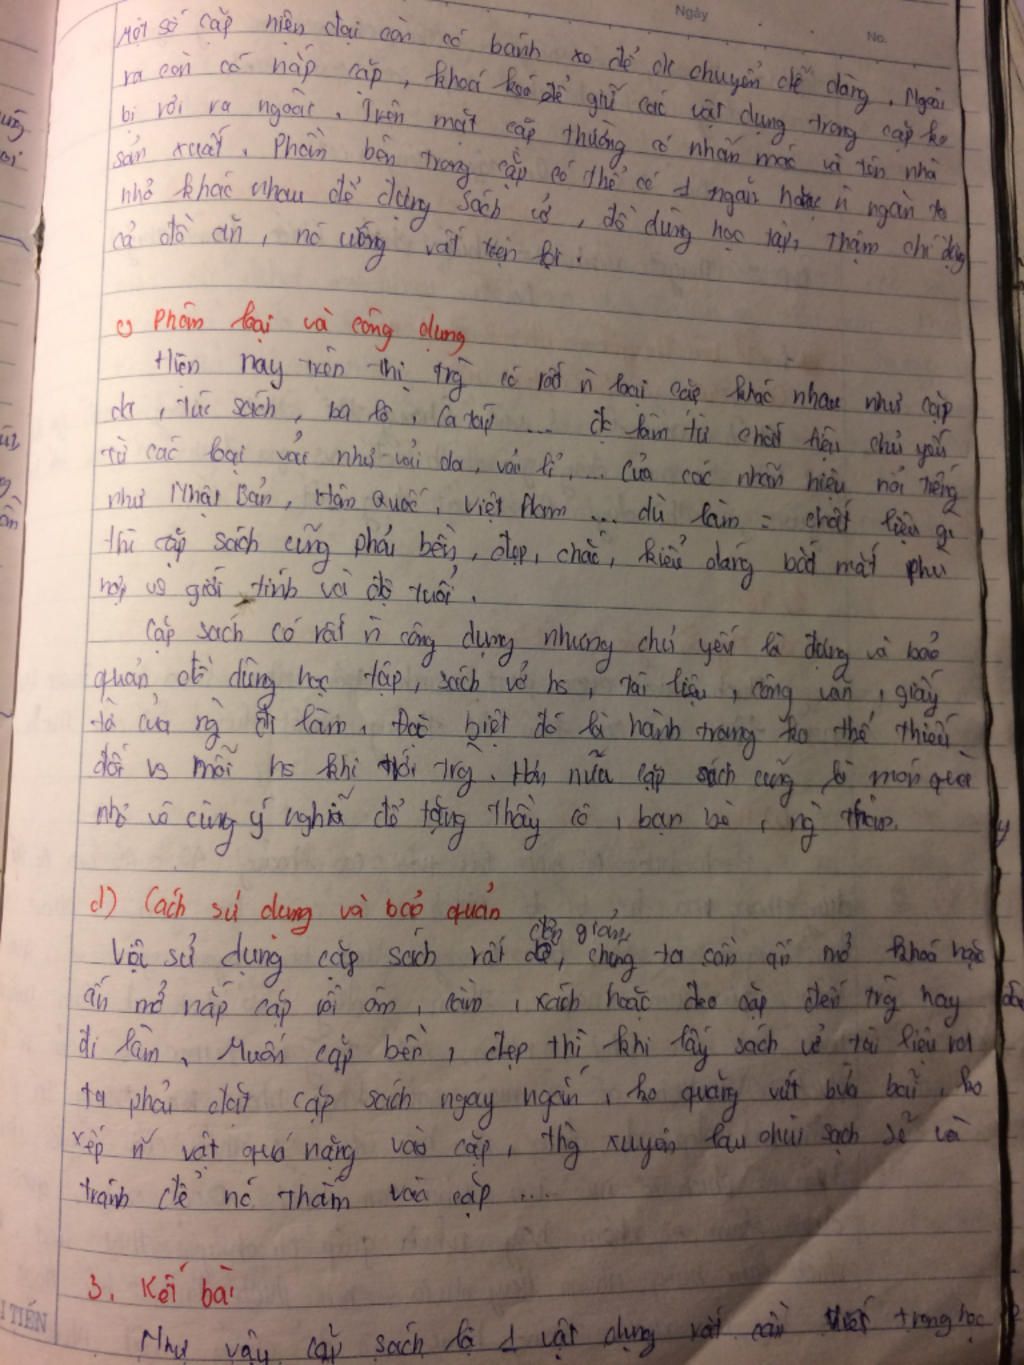 Ngày
No.
Một số cặp hiện đại còn có bánh xe để di chuyển dễ dàng. Ngoài
ra còn có nắp cặp, khoá kéo để giữ các vật dụng trong cặp ko
bị rơi ra ngoài. Trên mặt cặp thường có nhãn mác và tên nhà
sản xuất. Phần bên trong cặp có thể có 1 ngăn hoặc n ngăn to
nhỏ khác nhau để đựng sách vở, đồ dùng học tập, thậm chí đựng
cả đồ ăn, nc uống rất tiện lợi.
c) Phân loại và công dụng
Hiện nay trên thị trg có rất n loại cặp khác nhau như cặp
da, túi sách, ba lô, ca táp ... đc làm từ chất liệu chủ yếu
từ các loại vải như vải da, vải nỉ, ... của các nhãn hiệu nổi tiếng
như Nhật Bản, Hàn Quốc, Việt Nam ... dù làm = chất liệu gì
thì cặp sách cũng phải bền, đẹp, chắc, kiểu dáng bắt mắt phù
hợp vs giới tính và độ tuổi.
Cặp sách có rất n công dụng nhưng chủ yếu là đựng và bảo
quản đồ dùng học tập, sách vở hs, tài liệu, công văn, giấy
tờ của ng đi làm. Đặc biệt đó là hành trang ko thể thiếu
đối vs mỗi hs khi tới trg. Hơn nữa cặp sách cũng là món quà
nhỏ vô cùng ý nghĩa để tặng thầy cô, bạn bè, ng thân.
d) Cách sử dụng và bảo quản
đơn giản
Việc sử dụng cặp sách rất dễ, chúng ta cần ấn mở khoá hoặc
ấn mở nắp cặp rồi ôm, cầm, xách hoặc đeo cặp đến trg hay
đi làm. Muốn cặp bền, đẹp thì khi lấy sách vở tài liệu
ta phải đặt cặp sách ngay ngắn, ko quăng vứt bừa bãi, ko
xếp n~ vật quá nặng vào cặp, thg xuyên lau chùi sạch sẽ và
tránh để nc thấm vào cặp ...
3. Kết bài
TIẾN
Như vậy cặp sách là 1 vật dụng rất cần thiết trong học